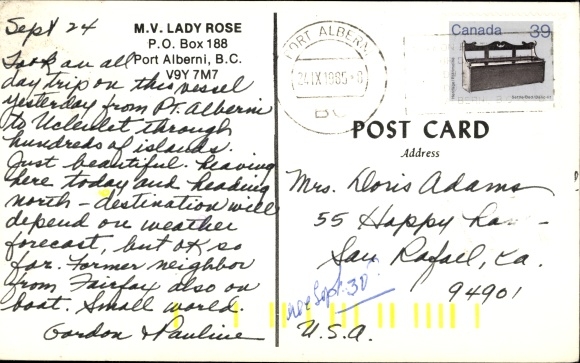 Sept 24
M.V. LADY ROSE
P.O. Box 188
Port Alberni, B.C.
V9Y 7M7
Took an all
day trip on this vessel
yesterday from Pt. Alberni
to Ucluelet through
hundreds of islands.
Just beautiful. Leaving
here today and heading
north - destination will
depend on weather
forecast, but OK so
far. Former neighbor
from Fairfax also on
boat. Small world.
Gordon & Pauline
PORT ALBERNI
24 IX 1985
BC
Canada 39
POST CARD
Address
Mrs. Doris Adams
55 Happy
San Rafael, Ca.
94901
Sept. 30
U.S.A.